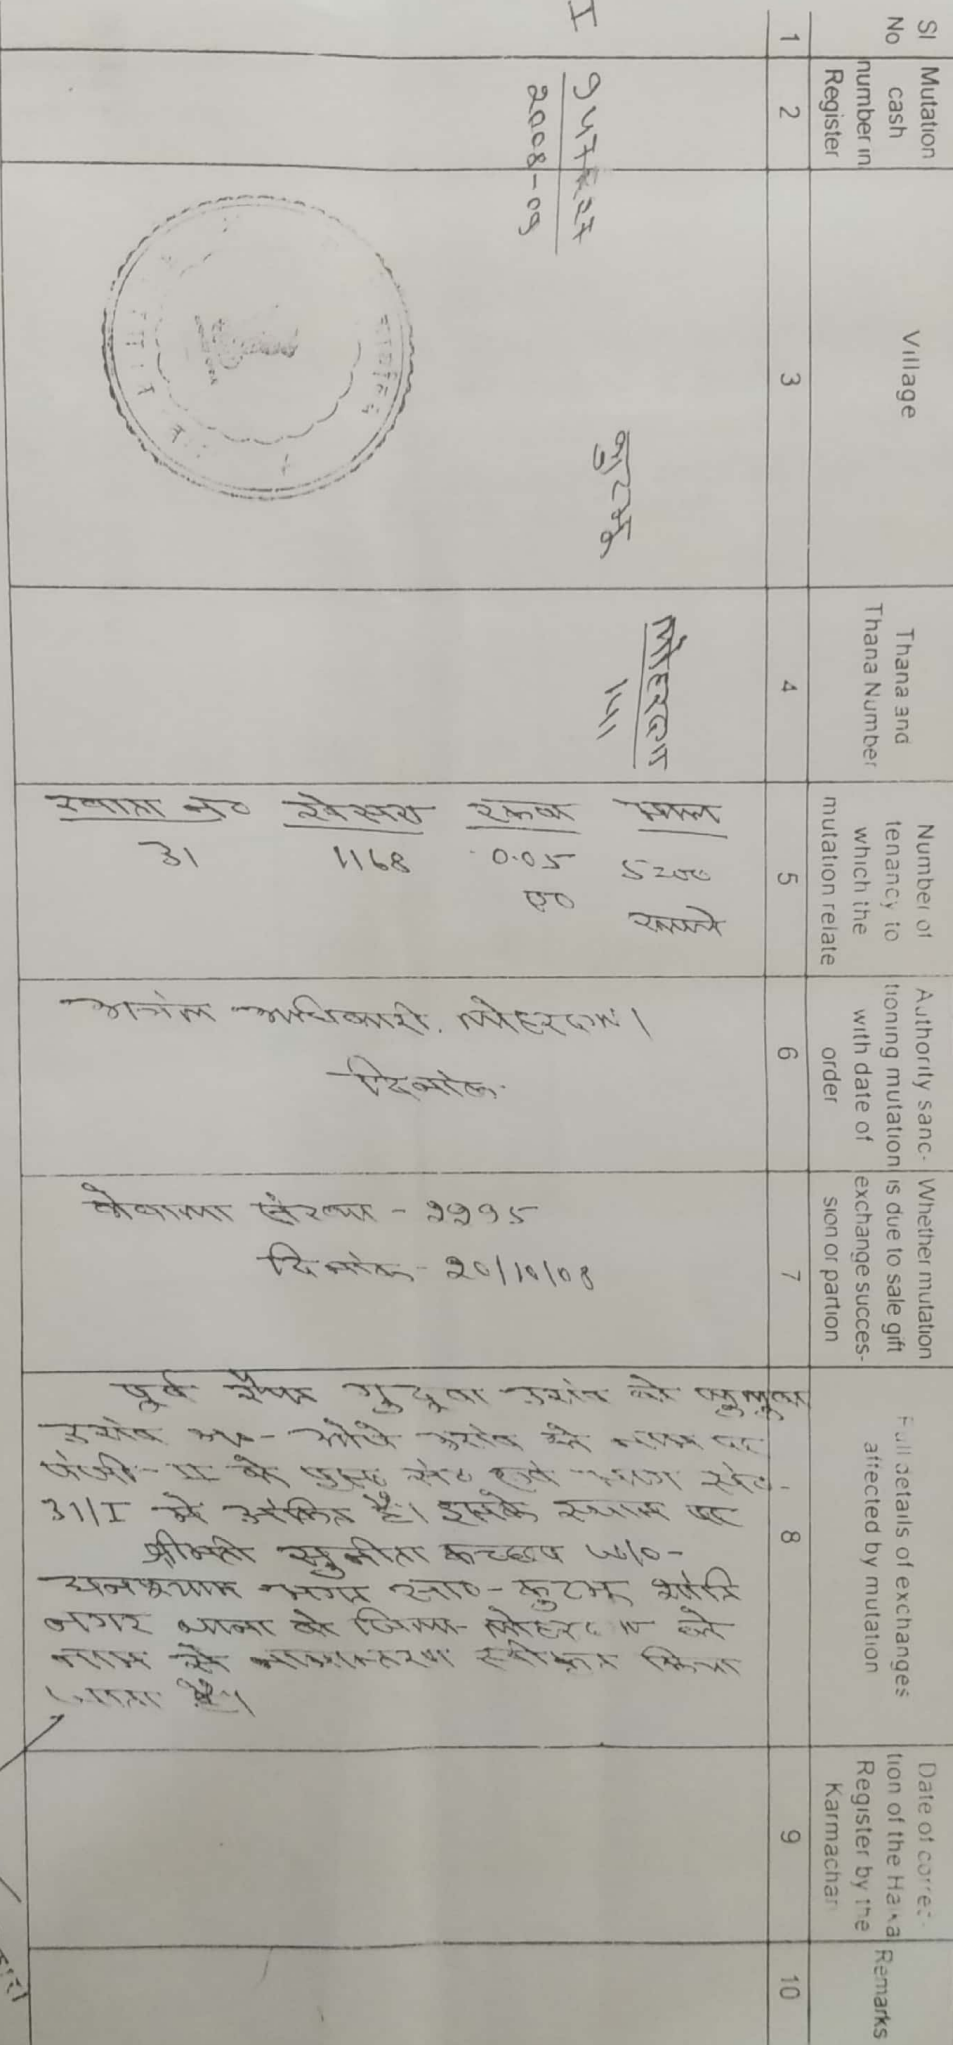 Sl
No
Mutation
cash
number in
Register
Village
Thana and
Thana Number
Number of
tenancy to
which the
mutation relate
Authority sanc-
tioning mutation
with date of
order
Whether mutation
is due to sale gift
exchange succes-
sion or partion
Full details of exchanges
affected by mutation
Date of correc-
tion of the Halka
Register by the
Karmachari
Remarks
1
2
3
4
5
6
7
8
9
10
I
947R27
2008-09
कुटमू
लोहरदगा
खाता नं०
31
खेसरा
1168
रकबा
0.05
ए०
लगान
5200
रूपये
अंचल अधिकारी, लोहरदगा।
दिनांक
केवाला संख्या - 2295
दिनांक - 20/10/08
पूर्व रैयत उरांव को
उरांव के नाम पर
पंजी-II के पृष्ठ सं०
31/I में अंकित है। इसके स्थान पर
श्रीमती सुनीता कच्छप W/o-
घनश्याम भगत सा०- कुटमू शांति
नगर थाना वो जिला लोहरदगा के
नाम से नामान्तरण स्वीकृत किया
जाता है।